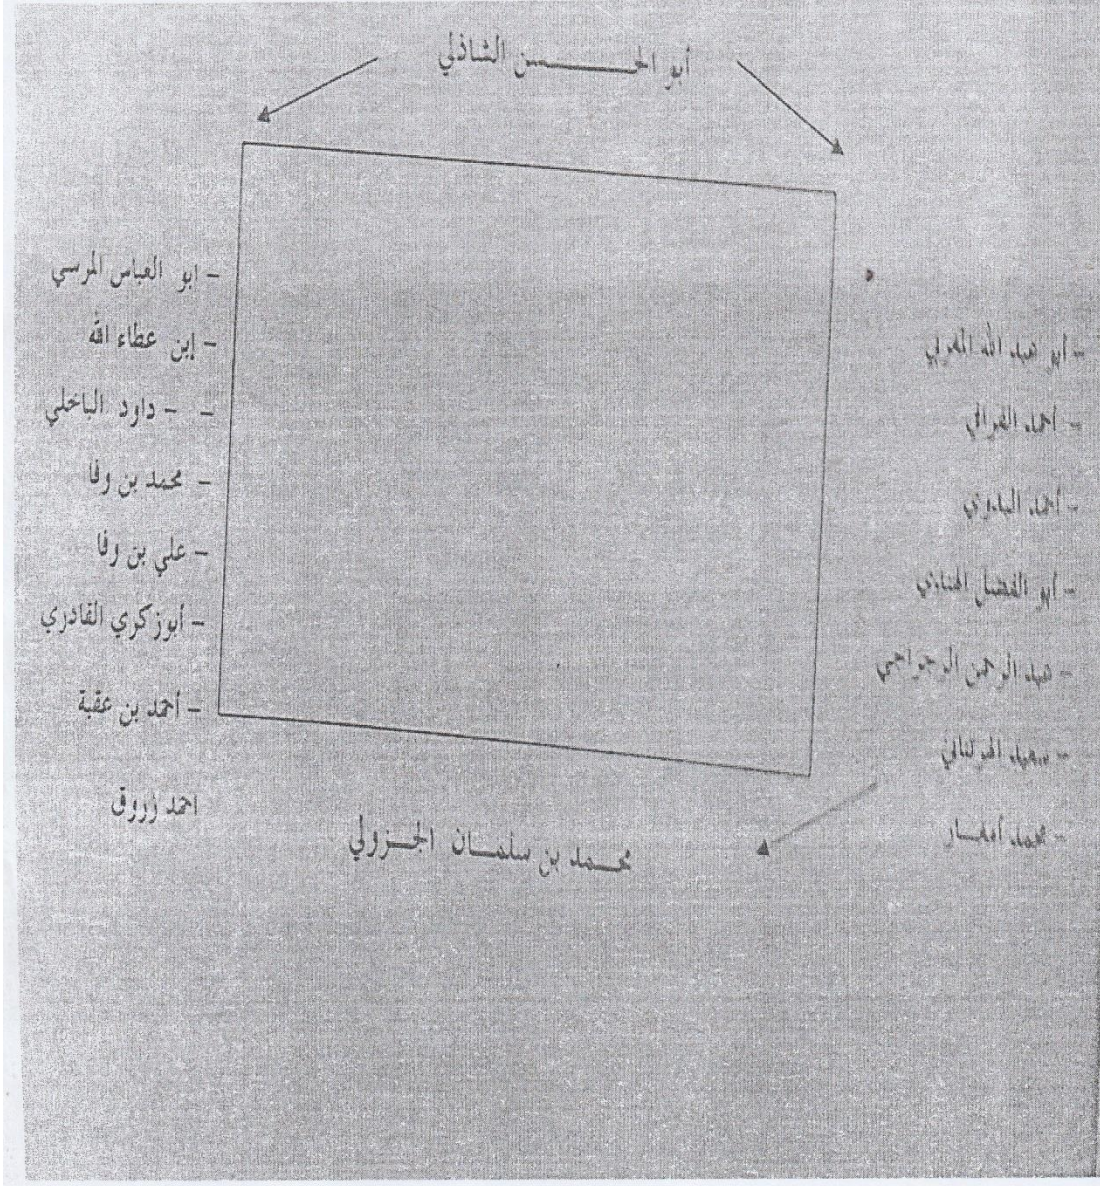 أبو الحسن الشاذلي
- أبو عبد الله المغربي
- أحمد القرافي
- أحمد البدوي
- أبو الفضل الهنادي
- عبد الرحمن الرجراجي
- سعيد الهرتناني
- محمد أمغار
- ابو العباس المرسي
- إبن عطاء الله
- - داود الباخلي
- محمد بن وفا
- علي بن وفا
- أبوزكري القادري
- أحمد بن عقبة
احمد زروق
محمد بن سلمان الجزولي